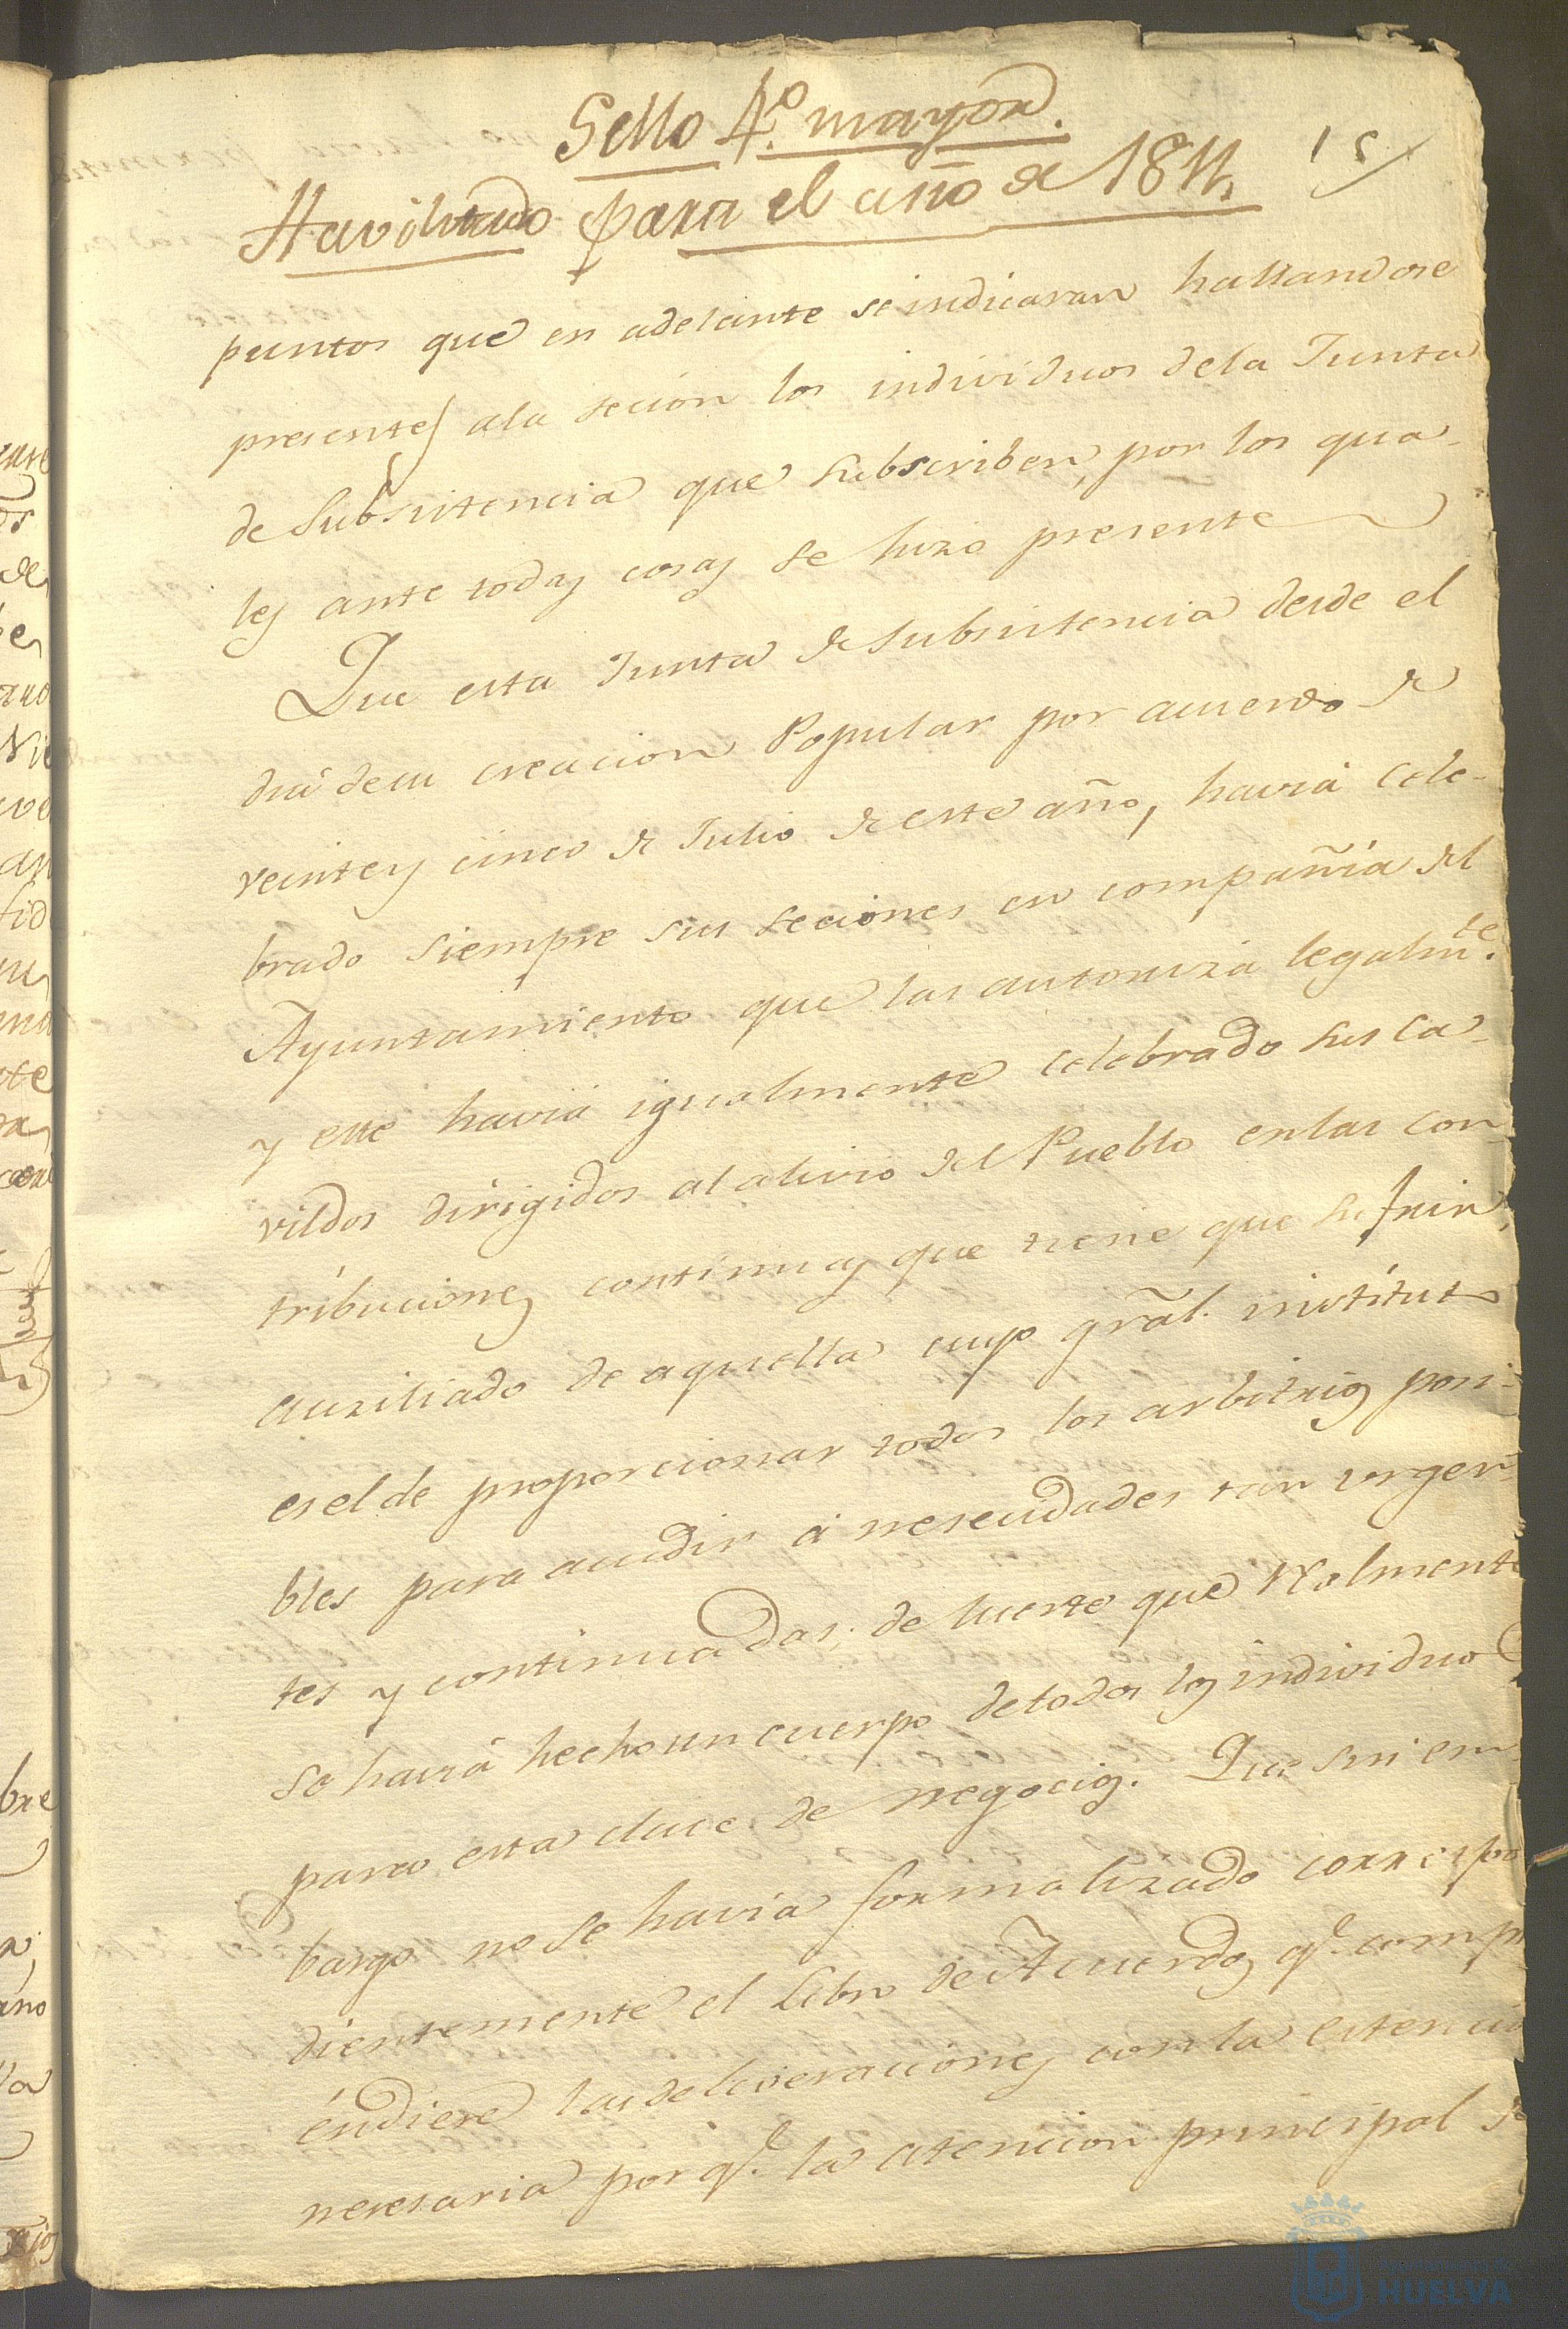 Sello 4.º mayor.
Havilitado para el año de 1811.
15
puntos que en adelante se indicaran hallandose
presentes ala secion los individuos dela Junta
de Subsistencia que subscriben, por los qua-
les ante todas cosas se hizo presente
Que esta Junta de Subsistencia desde el
dia desu creacion Popular por acuerdo de
veinte y cinco de Julio de este año, havia cele-
brado siempre sus seciones en compañia del
Ayuntamiento que las autoriza legalm.te
y este havia igualmente celebrado sus Ca-
vildos dirigidos al alivio del Pueblo enlas con-
tribuciones continuas que tiene que sufrir,
auxiliado de aquella cuyo gral. instituto
es el de proporcionar todos los arbitrios posi-
bles para acudir á nesecidades tan urgen-
tes y continuadas; de suerte que Realmente
se havia hecho un cuerpo de todos los individuos
para esta clace de negocios. Que sin em-
bargo no se havia formalizado correspon
dientemente el Libro de Acuerdos q.e compr
éndiese las deliveraciones con la estencion
necesaria por q.e la atencion principal de
HUELVA